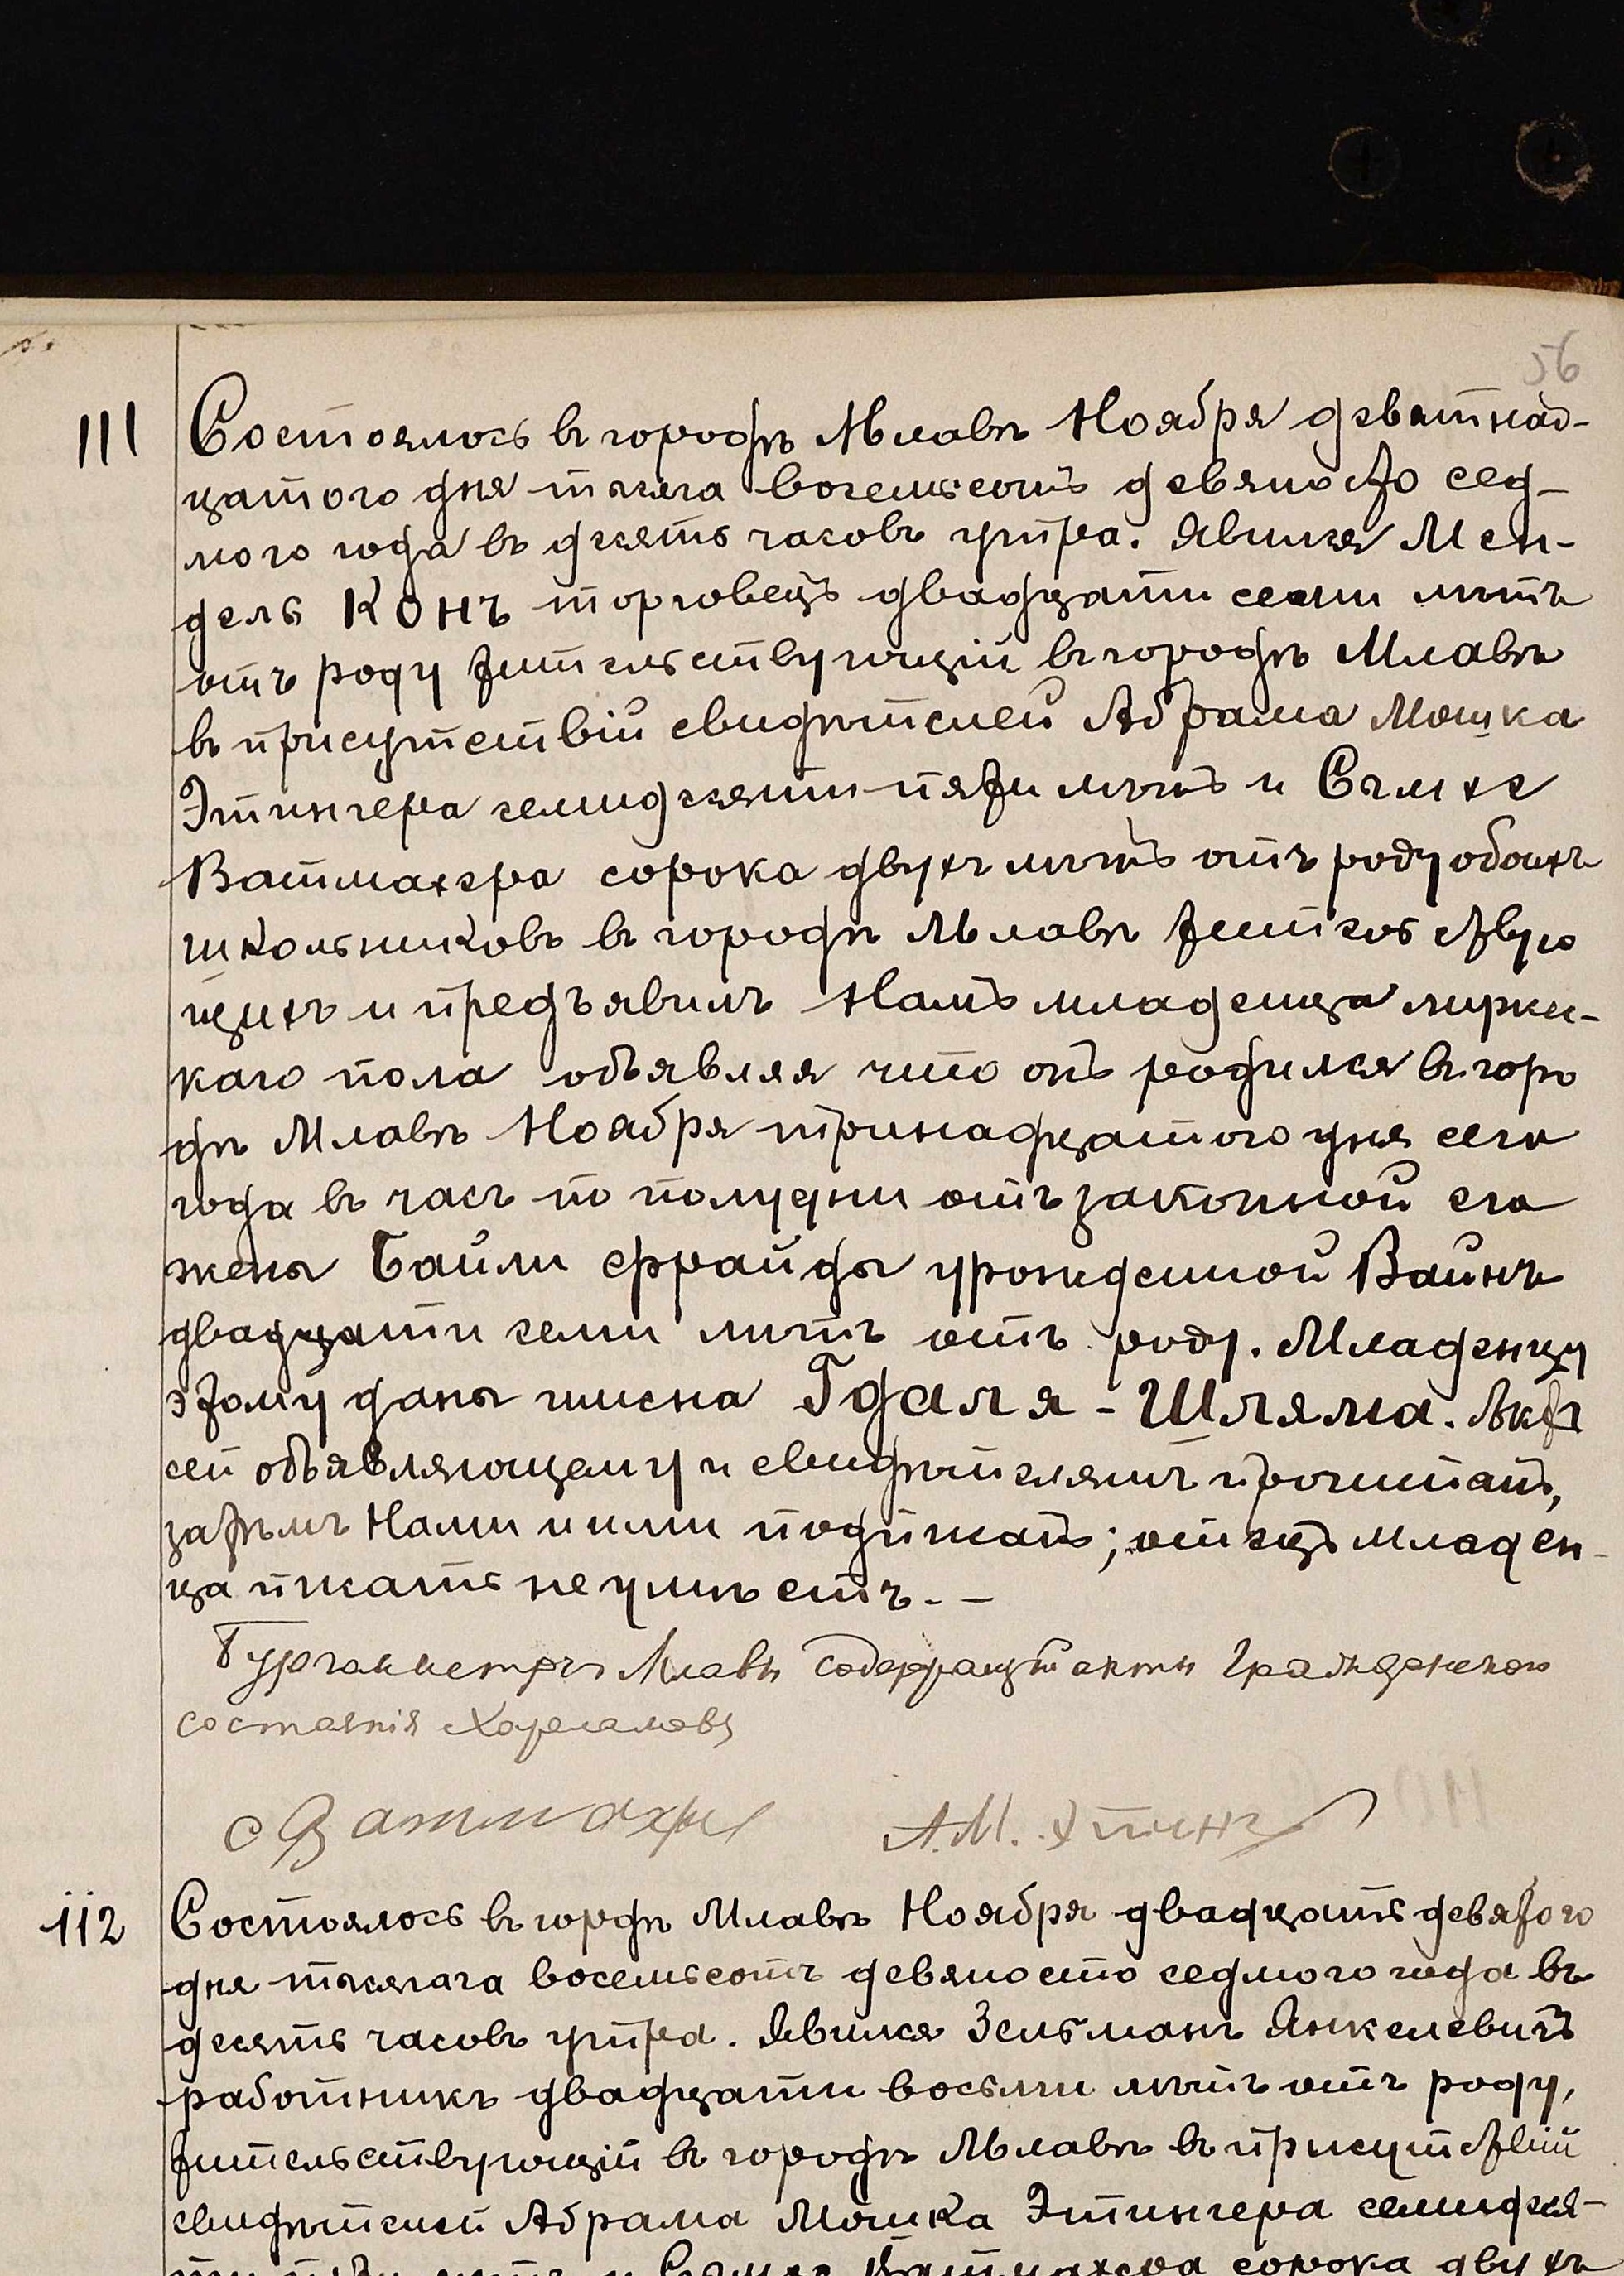 56
111 Состоялось въ городѣ Млавѣ Ноября девятнад-
цатого дня тысяча восемьсотъ девяносто сед-
мого года въ десять часовъ утра. Явился Мен-
дель КОНЪ торговецъ двадцати семи лѣтъ
отъ роду жительствующій въ городѣ Млавѣ
въ присутствіи свидѣтелей Абрама Мошка
Этингера семидесяти пяти лѣтъ и Сѫлихе
Ватмахера сорока двухъ лѣтъ отъ роду обоихъ
школьниковъ въ городѣ Млавѣ жительствую
щихъ и предъявилъ Намъ младенца мужес-
каго пола объявляя что онъ родился въ горо
дѣ Млавѣ Ноября тринадцатого дня сего
года въ часъ по полудни отъ законной его
жены Байли Фрайды урожденной Вайнъ
двадцати семи лѣтъ отъ роду. Младенцу
этому даны имена Гдаля-Шляма. Актъ
сей объявляющему и свидѣтелямъ прочитанъ,
затѣмъ Нами и ими подписанъ; отецъ младен-
ца писать не умѣетъ. -
Бургомистръ Млавы содержащій акты Гражданского
состоянія
С Ватмахеръ А.М. Этингеръ
112 Состоялось въ городѣ Млавѣ Ноября двадцать девятого
дня тысяча восемьсотъ девяносто седмого года въ
десять часовъ утра. Явился Зельманъ Янкелевичъ
работникъ двадцати восьми лѣтъ отъ роду,
жительствующій въ городѣ Млавѣ въ присутствіи
свидѣтелей Абрама Мошка Этингера семидеся-
ти пяти лѣтъ и Ватмахера сорока двухъ